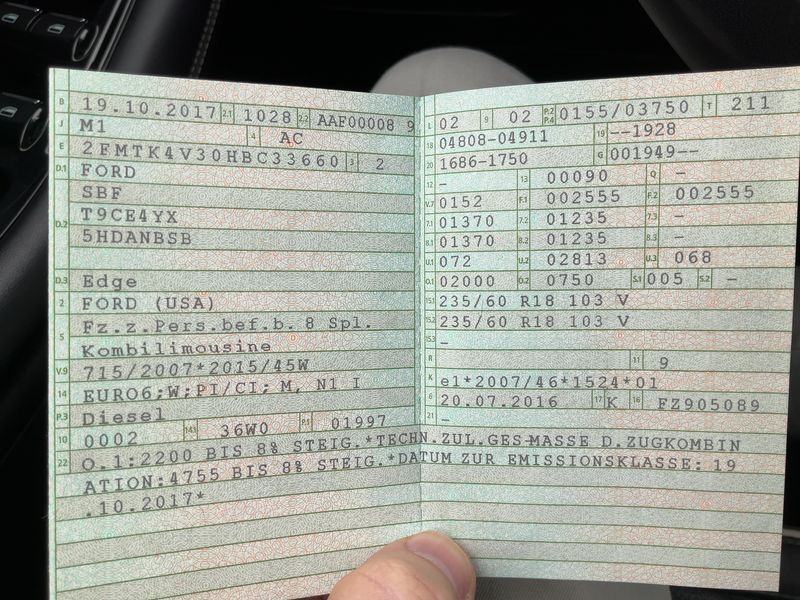 B 19.10.2017 2.1 1028 2.2 AAF00008 9
J M1 4 AC
E 2FMTK4V30HBC33660 3 2
D.1 FORD
SBF
D.2 T9CE4YX
5HDANBSB
D.3 Edge
2 FORD (USA)
5 Fz.z.Pers.bef.b. 8 Spl.
Kombilimousine
V.9 715/2007*2015/45W
14 EURO6;W;PI/CI; M, N1 I
P.3 Diesel
10 0002 14.1 36W0 P.1 01997
L 02 9 02 P.2 P.4 0155/03750 T 211
18 04808-04911 19 --1928
20 1686-1750 G 001949--
12 - 13 00090 Q -
V.7 0152 F.1 002555 F.2 002555
7.1 01370 7.2 01235 7.3 -
8.1 01370 8.2 01235 8.3 -
U.1 072 U.2 02813 U.3 068
O.1 02000 O.2 0750 S.1 005 S.2 -
15.1 235/60 R18 103 V
15.2 235/60 R18 103 V
15.3 -
R 11 9
K e1*2007/46*1524*01
6 20.07.2016 17 K 16 FZ905089
21 -
22 O.1:2200 BIS 8% STEIG.*TECHN.ZUL.GES-MASSE D.ZUGKOMBIN
ATION:4755 BIS 8% STEIG.*DATUM ZUR EMISSIONSKLASSE: 19
.10.2017*